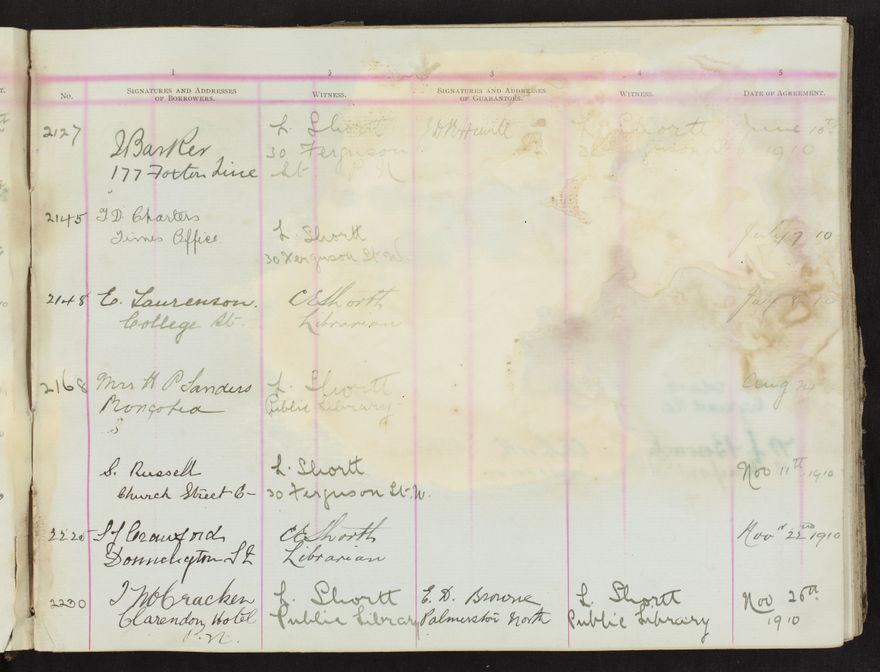 1 2 3 4 5
No. Signatures and Addresses of Borrowers. Witness. Signatures and Addresses of Guarantors. Witness. Date of Agreement.
2127 L. Shortt L. Shortt June
J Barker 30 Ferguson 1910
177 Foxton Line St P. N
2145 T. D. Charters
Times Office L. Shortt July 7 10
30 Ferguson St. W.
2148 E. Laurenson. C E Shortt July 8 10
College St. Librarian
2168 Mrs H P Sanders L. Shortt Aug
Rongotea Public Library
S. Russell L. Shortt Nov 11th 1910
Church Street 30 Ferguson St. W.
2225 Crawford C E Shortt Nov 22nd 1910
Donnelington St Librarian
2230 J McCracken L. Shortt E. D. Browne L. Shortt Nov 26th
Clarendon Hotel Public Library Palmerston North Public Library 1910
P. N.